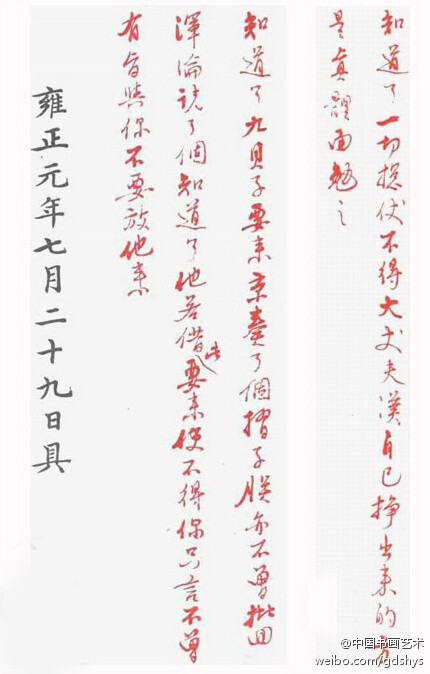 知道了一切總仗不得大丈夫漢自己挣出来的方
是真體面勉之
知道了九貝子要来京奏了個摺子朕亦不曾批回
渾淪説了個知道了他若借此要来使不得你只言不曾
有旨與你不要放他来
雍正元年七月二十九日具
@中国书画艺术
weibo.com/gdshys